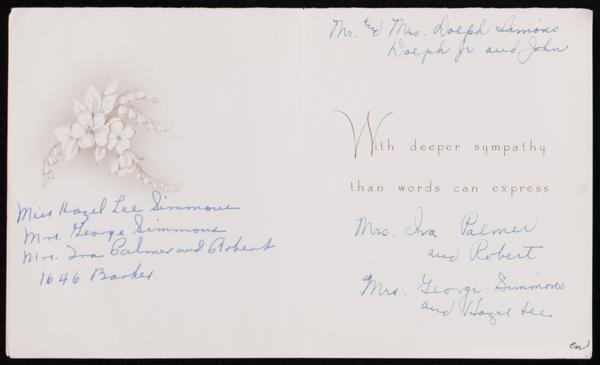 Miss Hazel Lee Simmons
Mrs. George Simmons
Mrs. Ira Palmer and Robert
1646 Barker
Mr. and Mrs. Dolph Simons
Dolph Jr and John
With deeper sympathy
than words can express
Mrs. Ira Palmer
and Robert
Mrs. George Simmons
and Hazel Lee